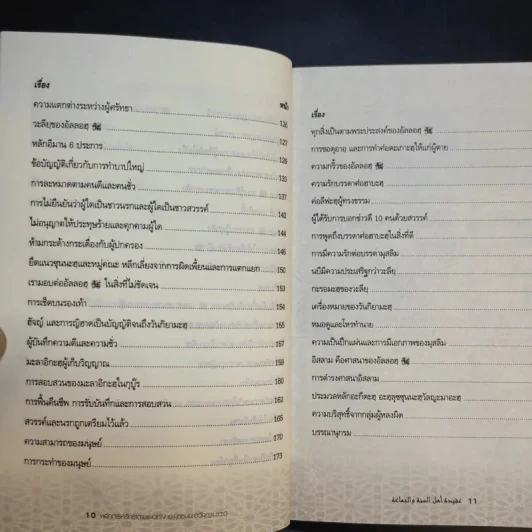 เรื่อง หน้า
ความแตกต่างระหว่างผู้ศรัทธา 126
วะลียของอัลลอฮฺ ﷻ 127
หลักอีมาน 6 ประการ 129
ข้อบัญญัติเกี่ยวกับการทำบาปใหญ่ 133
การละหมาดตามคนดีและคนชั่ว 137
การไม่ยืนยันว่าผู้ใดเป็นชาวนรกและผู้ใดเป็นชาวสวรรค์ 142
ไม่อนุญาตให้ประทุษร้ายและคุกคามผู้ใด 144
ห้ามกระด้างกระเดื่องกับผู้ปกครอง 146
ยึดแนวซุนนะฮฺและหมู่คณะ หลีกเลี่ยงจากการผิดเพี้ยนและการแตกแยก 150
เรามอบต่ออัลลอฮฺ ﷻ ในสิ่งที่ไม่ชัดเจน 153
การเช็ดบนรองเท้า 154
ฮัจญ์ และการญิฮาดเป็นบัญญัติจนถึงวันกิยามะฮฺ 155
ผู้บันทึกความดีและความชั่ว 157
มะลาอิกะฮฺผู้เก็บวิญญาณ 159
การสอบสวนของมะลาอิกะฮฺในกุบูร 160
การฟื้นคืนชีพ การรับบันทึกและการสอบสวน 162
สวรรค์และนรกถูกเตรียมไว้แล้ว 165
ความสามารถของมนุษย์ 170
การกระทำของมนุษย์ 173
10
เรื่อง
ทุกสิ่งเป็นตามพระประสงค์ของอัลลอฮฺ ﷻ
การขอดุอาอ และการทำศ่อดะเกาะฮฺให้แก่ผู้ตาย
ความกริ้วของอัลลอฮฺ ﷻ
ความรักบรรดาศ่อฮาบะฮฺ
ค่อลีฟะฮฺผู้ทรงธรรม
ผู้ได้รับการบอกข่าวดี 10 คนด้วยสวรรค์
การพูดถึงบรรดาศ่อฮาบะฮฺในสิ่งที่ดี
การมีความรักต่อบรรดามุสลิม
นบีมีความประเสริฐกว่าวะลีย
กะรอมะฮฺของวะลีย
เครื่องหมายของวันกิยามะฮฺ
หมอดูและโหรทำนาย
ความเป็นปึกแผ่นและการมีเอกภาพของมุสลิม
อิสลาม คือศาสนาของอัลลอฮฺ ﷻ
การดำรงศาสนาอิสลาม
ประมวลหลักอะกีดะฮฺ อะฮฺลุซซุนนะฮฺวัลญะมาอะฮฺ
ความบริสุทธิ์จากกลุ่มผู้หลงผิด
บรรณานุกรม
عقيدة أهل السنة والجماعة 11